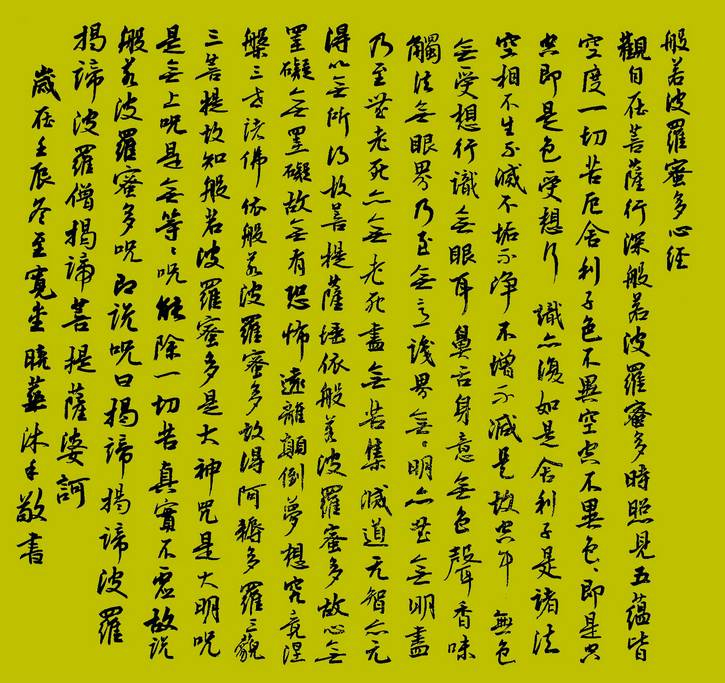 般若波羅蜜多心經
觀自在菩薩行深般若波羅蜜多時照見五蘊皆
空度一切苦厄舍利子色不異空空不異色色即是空
空即是色受想行識亦復如是舍利子是諸法
空相不生不滅不垢不净不增不減是故空中無色
無受想行識無眼耳鼻舌身意無色聲香味
觸法無眼界乃至無意識界無無明亦無無明盡
乃至無老死亦無老死盡無苦集滅道无智亦无
得以無所得故菩提薩埵依般若波羅蜜多故心無
罣礙無罣礙故無有恐怖遠離顛倒夢想究竟涅
槃三世諸佛依般若波羅蜜多故得阿耨多羅三藐
三菩提故知般若波羅蜜多是大神咒是大明咒
是無上咒是無等等咒能除一切苦真實不虛故說
般若波羅蜜多咒即說咒曰揭諦揭諦波羅
揭諦波羅僧揭諦菩提薩婆訶
歲在壬辰冬至寬堂曉蘇沐手敬書